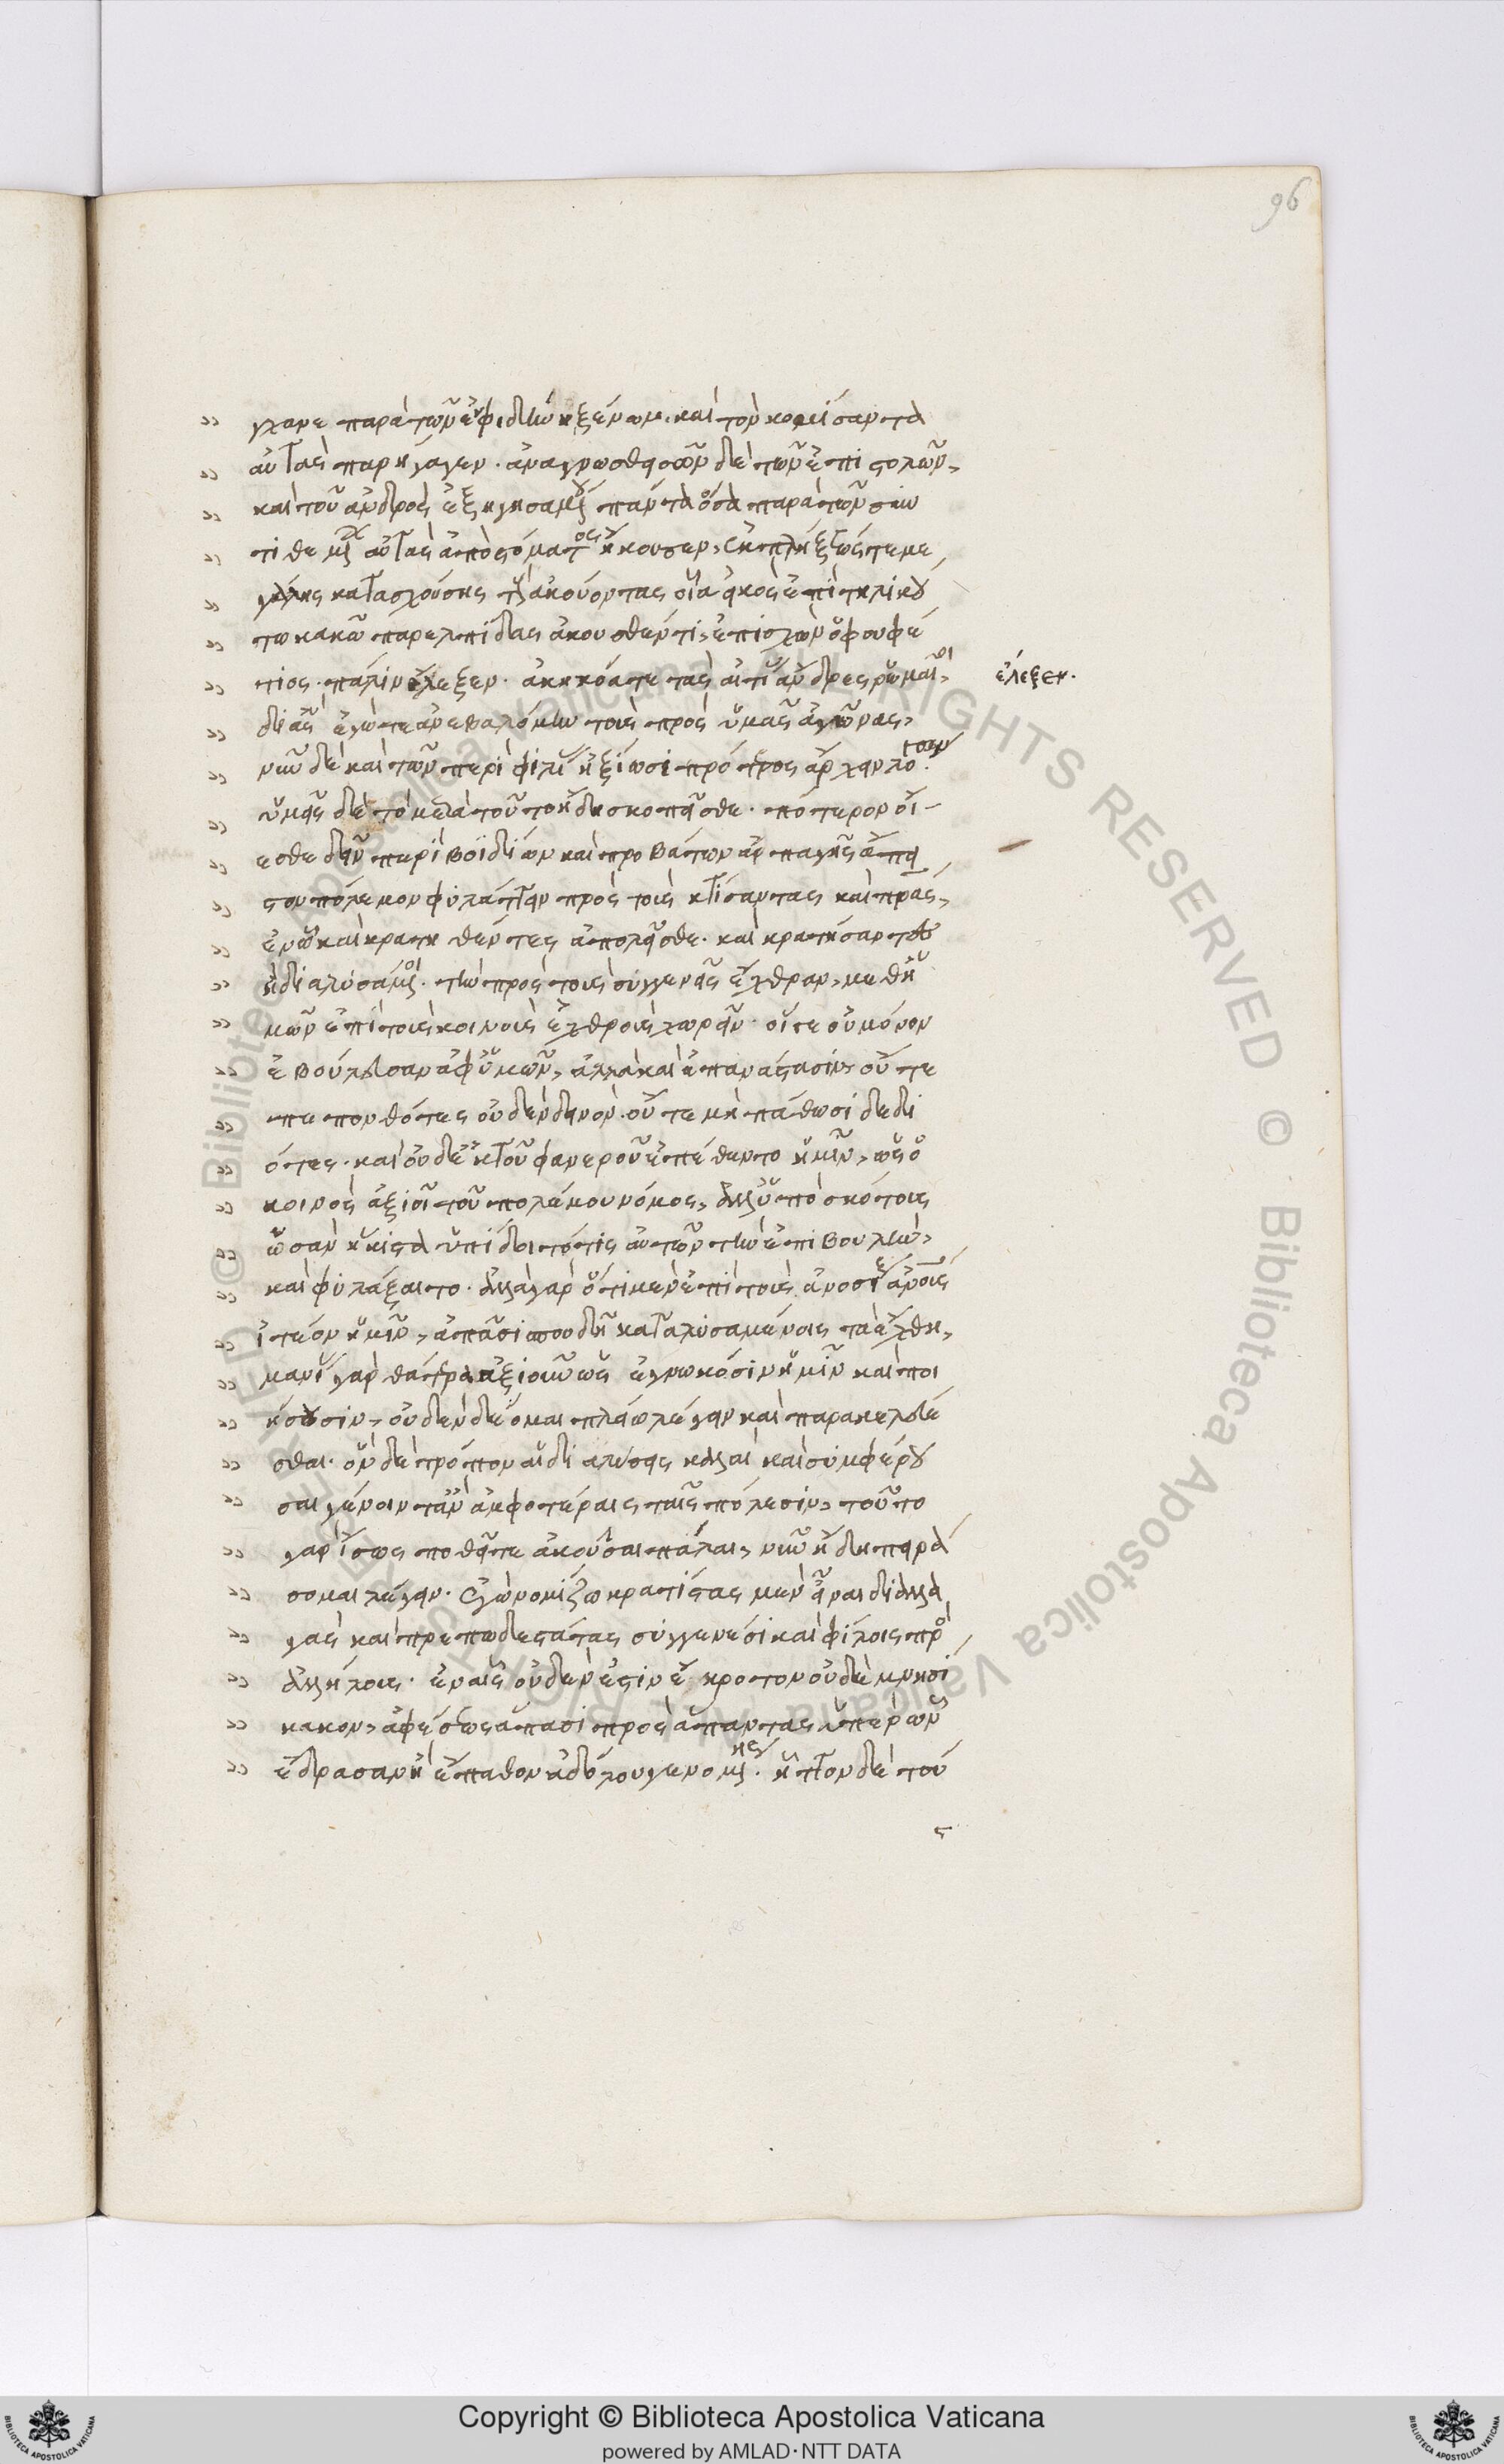 96
γχανε παρὰ τῶν ἐν φιδήνῃ ξένων. καὶ τὸν κομίσαντα
αὐτὰς παρήγαγεν. ἀναγνωσθεισῶν δὲ τῶν ἐπιστολῶν,
καὶ τοῦ ἀνδρὸς ἐξηγησαμένου πάντα ὅσα παρὰ τῶν συν
τιθεμένων αὐτὰς ἀπὸ στόματος ἤκουσεν, ἐκπλήξεώς τε με
γάλης κατασχούσης τοὺς ἀκούοντας οἷα εἰκὸς ἐπὶ τηλικού
τω κακῶ παρ' ἐλπίδας ἀκουσθέντι, ἐπισχὼν ὁ φουφέ
τιος. πάλιν ἔλεξεν. ἀκηκόατε τὰς αἰτίας ἄνδρες ῥωμαῖοι,
ἔλεξεν.
δι' ἃς ἐγώ τε ἀνεβαλόμην τοὺς πρὸς ὑμᾶς ἀγῶνας,
νῦν δὲ καὶ τῶν περὶ φιλίας ἠξίωσι πρότερος ἄρχειν λόγων.
ὑμεῖς δὲ τὸ μετὰ τοῦτο ἤδη σκοπεῖσθε. πότερον οἴ-
εσθε δεῖν περὶ βοϊδίων καὶ προβατίων ἁρπαγῆς ἄπει
στον πόλεμον φυλάττειν πρὸς τοὺς κτίσαντας καὶ πρας,
ἐν ᾧ καὶ κρατηθέντες ἀπολεῖσθε. καὶ κρατήσαντες
ἢ διαλυσάμενοι. τὴν πρὸς τοὺς συγγενεῖς ἔχθραν, μεθ' ἡ
μῶν ἐπὶ τοὺς κοινοὺς ἐχθροὺς χωρεῖν. οἵ γε οὐ μόνον
ἐβούλευσαν ἀφ' ὑμῶν, ἀλλὰ καὶ ἐπανάστασιν, οὔτε
πεπονθότες οὐδὲν δεινόν. οὔτε μὴ πάθωσι δεδι
ότες. καὶ οὐδὲ ἐκ τοῦ φανεροῦ ἐπέθεντο ἡμῖν, ὡς ὁ
κοινὸς ἀξιοῖ τοῦ πολέμου νόμος, ἀλλ' ὑπὸ σκότους
ὡς ἂν ἥκιστα ὑπίδοιτό τις αὐτῶν τὴν ἐπιβουλὴν,
καὶ φυλάξαιτο. ἀλλὰ γὰρ ὅτι μὲν ἐπὶ τοὺς ἀνοσίους ἀνους
ἰτέον ἡμῖν, ἁπάσῃ σπουδῇ καταλυσαμένοις τὰ ἔχθη,
μανίας γὰρ θάτερα ἀξιοῦν ὡς ἐγνωκόσιν ἡμῖν καὶ ποι
ήσουσιν, οὐδὲν δέομαι πλείω λέγειν καὶ παρακελεύε
σθαι. ὃν δὲ τρόπον αἱ διαλύσεις καλαὶ καὶ συμφέρου
σαι γένοιντ' ἂν ἀμφοτέραις ταῖς πόλεσιν, τοῦτο
γὰρ ἴσως ποθεῖτε ἀκοῦσαι πάλαι, νῦν ἤδη πειρά
σομαι λέγειν. ἐγὼ νομίζω κρατίστας μὲν εἶναι διαλλα
γὰς καὶ πρεπωδεστάτας συγγενέσι καὶ φίλοις πρὸς
ἀλλήλους. ἐν αἷς οὐδέν ἐστιν ἔγκοτον οὐδὲ μνησί
κακον, ἀφέσεως ἅπασι πρὸς ἅπαντας ὑπὲρ ὧν
ἔδρασαν ἢ ἔπαθον ἀδόλου γενομένης. ἧττον δὲ τού
ς
Copyright © Biblioteca Apostolica Vaticana
powered by AMLAD·NTT DATA